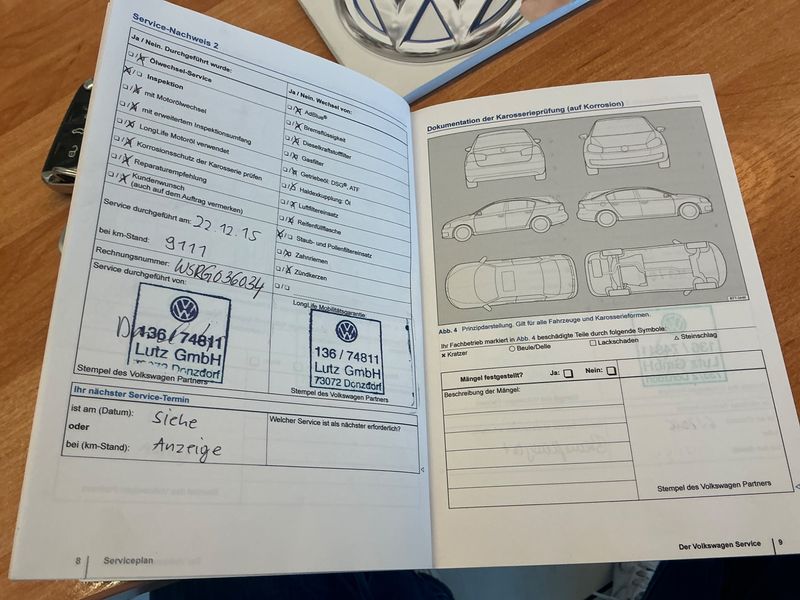 Service-Nachweis 2
Ja / Nein. Durchgeführt wurde:
Ölwechsel-Service
Inspektion
mit Motorölwechsel
mit erweitertem Inspektionsumfang
LongLife Motoröl verwendet
Korrosionsschutz der Karosserie prüfen
Reparaturempfehlung
Kundenwunsch
(auch auf dem Auftrag vermerken)
Ja / Nein. Wechsel von:
AdBlue®
Bremsflüssigkeit
Dieselkraftstofffilter
Gasfilter
Getriebeöl: DSG®, ATF
Haldexkupplung: Öl
Luftfiltereinsatz
Reifenfüllflasche
Staub- und Pollenfiltereinsatz
Zahnriemen
Zündkerzen
Service durchgeführt am: 22.12.15
bei km-Stand: 9111
Rechnungsnummer: WSRG036034
Service durchgeführt von:
136 / 74811
Lutz GmbH
73072 Donzdorf
Stempel des Volkswagen Partners
LongLife Mobilitätsgarantie:
136 / 74811
Lutz GmbH
73072 Donzdorf
Stempel des Volkswagen Partners
Ihr nächster Service-Termin
ist am (Datum): Siehe
oder
bei (km-Stand): Anzeige
Welcher Service ist als nächster erforderlich?
8 Serviceplan
Dokumentation der Karosserieprüfung (auf Korrosion)
Abb. 4 Prinzipdarstellung. Gilt für alle Fahrzeuge und Karosserieformen.
Ihr Fachbetrieb markiert in Abb. 4 beschädigte Teile durch folgende Symbole:
× Kratzer ○ Beule/Delle □ Lackschaden △ Steinschlag
Mängel festgestellt? Ja: Nein:
Beschreibung der Mängel:
Stempel des Volkswagen Partners
Der Volkswagen Service 9